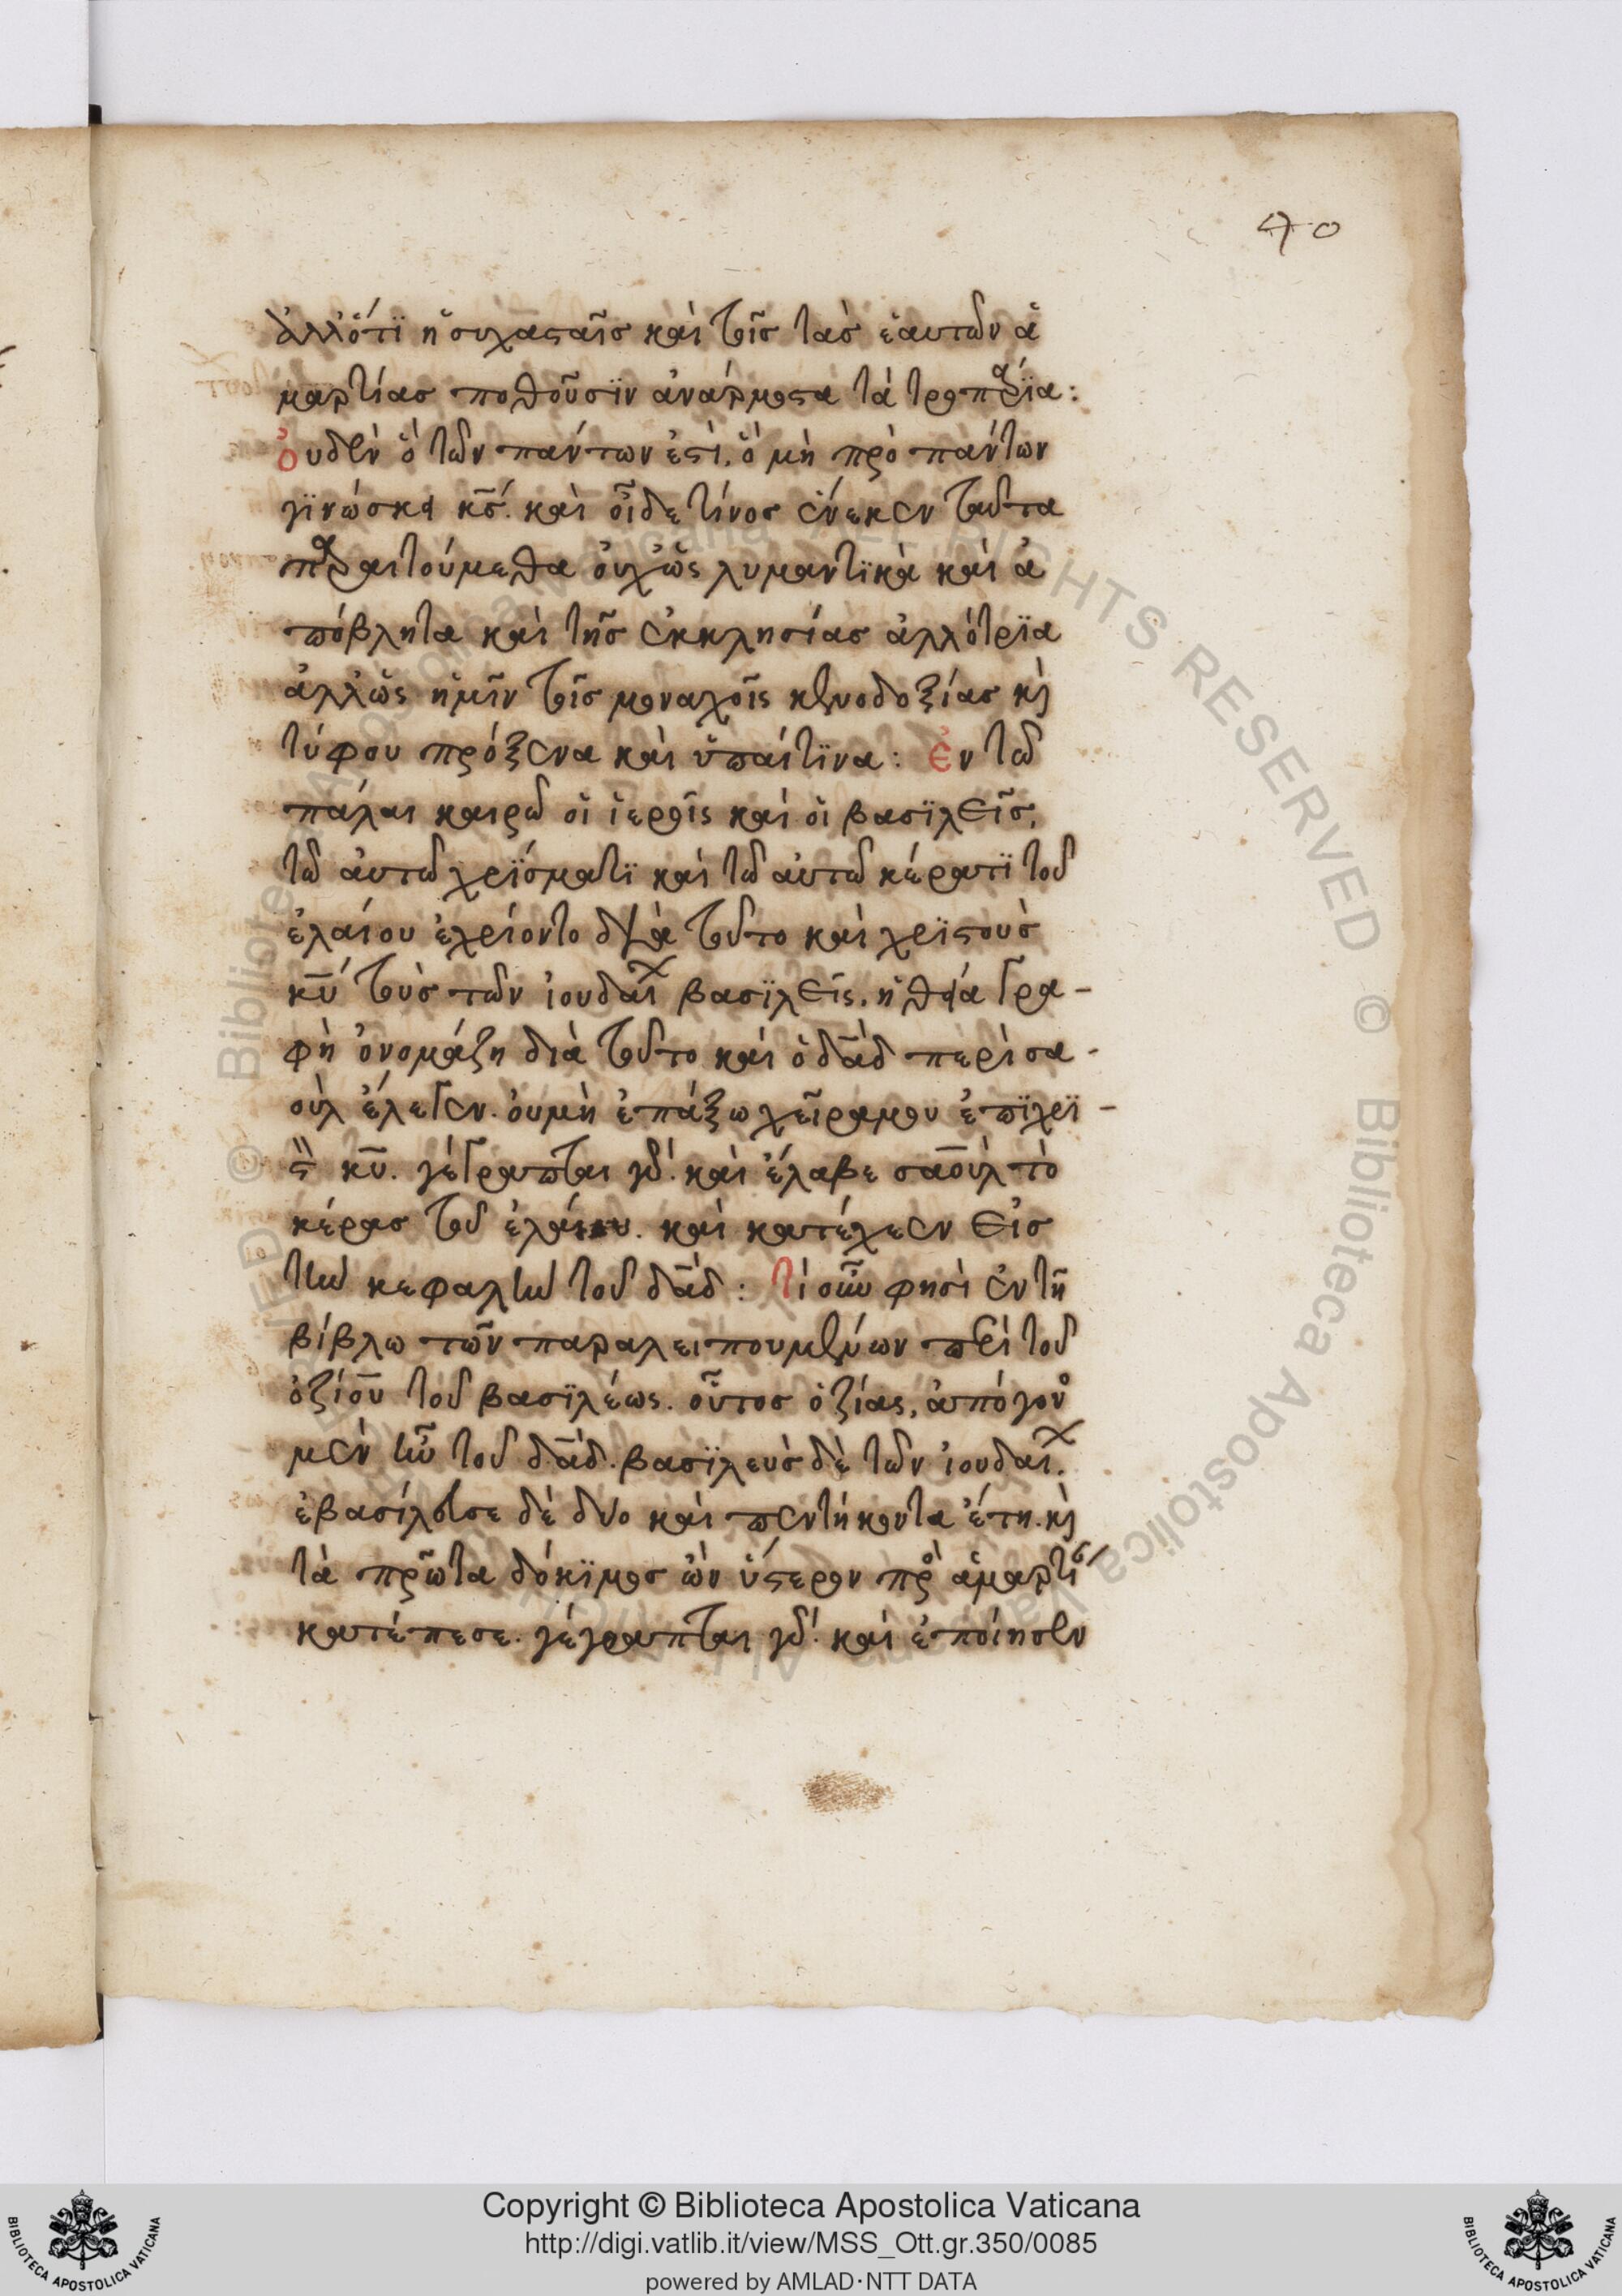 40
ἀλλ' ὅτι ἡσυχασταῖς καὶ τοῖς τὰς ἑαυτῶν ἁ
μαρτίας ποθοῦσϊν ἀνάρμοστα τὰ τροπάρϊα:
Ὀυδὲν ὃ τῶν πάντων ἐστὶ, ὃ μὴ πρὸ πάντων
γϊνώσκει κς. καὶ οἶδε τίνος ἕνεκεν ταῦτα
παραιτούμεθα ὀυχ' ὡς λυμαντϊκὰ καὶ ἀ
πόβλητα καὶ τῆς ἐκκλησίας ἀλλότρϊα
ἀλλ' ὡς ἡμῖν τοῖς μοναχοῖς κενοδοξίας κὶ
τύφου πρόξενα καὶ ὑπαίτϊνα: Ἐν τῶ
πάλαι καιρῶ οἱ ἱεροῖς καὶ οἱ βασϊλεῖς,
τῶ ἀυτῶ χρϊσματϊ καὶ τῶ ἀυτῶ κέρατϊ τοῦ
ἐλαίου ἐχρίοντο διὰ τοῦτο καὶ χρϊστοὺς
κυ τοὺς τῶν ἰουδαϊ^χ βασϊλεῖς. ἡ θεία γρα-
φὴ ὀνομάζη διὰ τοῦτο καὶ ὁ δαδ περὶ σα-
οὺλ ἔλεγεν. ὀυμὴ ἐπάξω χεῖραμου ἐπϊχρϊ-
στὸν κυ. γέγραπται γὰρ. καὶ ἔλαβε σαοὺλ τὸ
κέρας τοῦ ἐλαίου. καὶ κατέχεεν εἰς
τὴν κεφαλὴν τοῦ δαδ: Τί οὖν φησὶ ἐν τῆ
βίβλω τῶν παραλειπουμένων περὶ τοῦ
ὀζίου τοῦ βασϊλέως. οὗτος ὀζίας, ἀπόγον^ο
μὲν ἦν τοῦ δαδ. βασϊλεὺς δὲ τῶν ἰουδαϊ^χ.
ἐβασίλευσε δὲ δύο καὶ πεντήκοντα ἔτη. κὶ
τὰ πρῶτα δόκϊμος ὢν ὕστερον πρὸ ἁμαρτί
κατέπεσε. γέγραπται γὰρ. καὶ ἐποίησεν
Copyright © Biblioteca Apostolica Vaticana
http://digi.vatlib.it/view/MSS_Ott.gr.350/0085
powered by AMLAD·NTT DATA
BIBLIOTECA APOSTOLICA VATICANA
BIBLIOTECA APOSTOLICA VATICANA